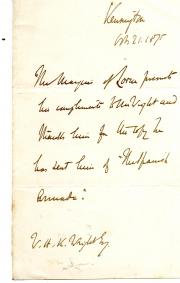 Kensington
Oct. 21. 1875
The Marquis of Lorne presents
his compliments to Mr Wright and
thanks him for the copy he
has sent him of "The Spanish
Armada".
W. H. K. Wright Esq.